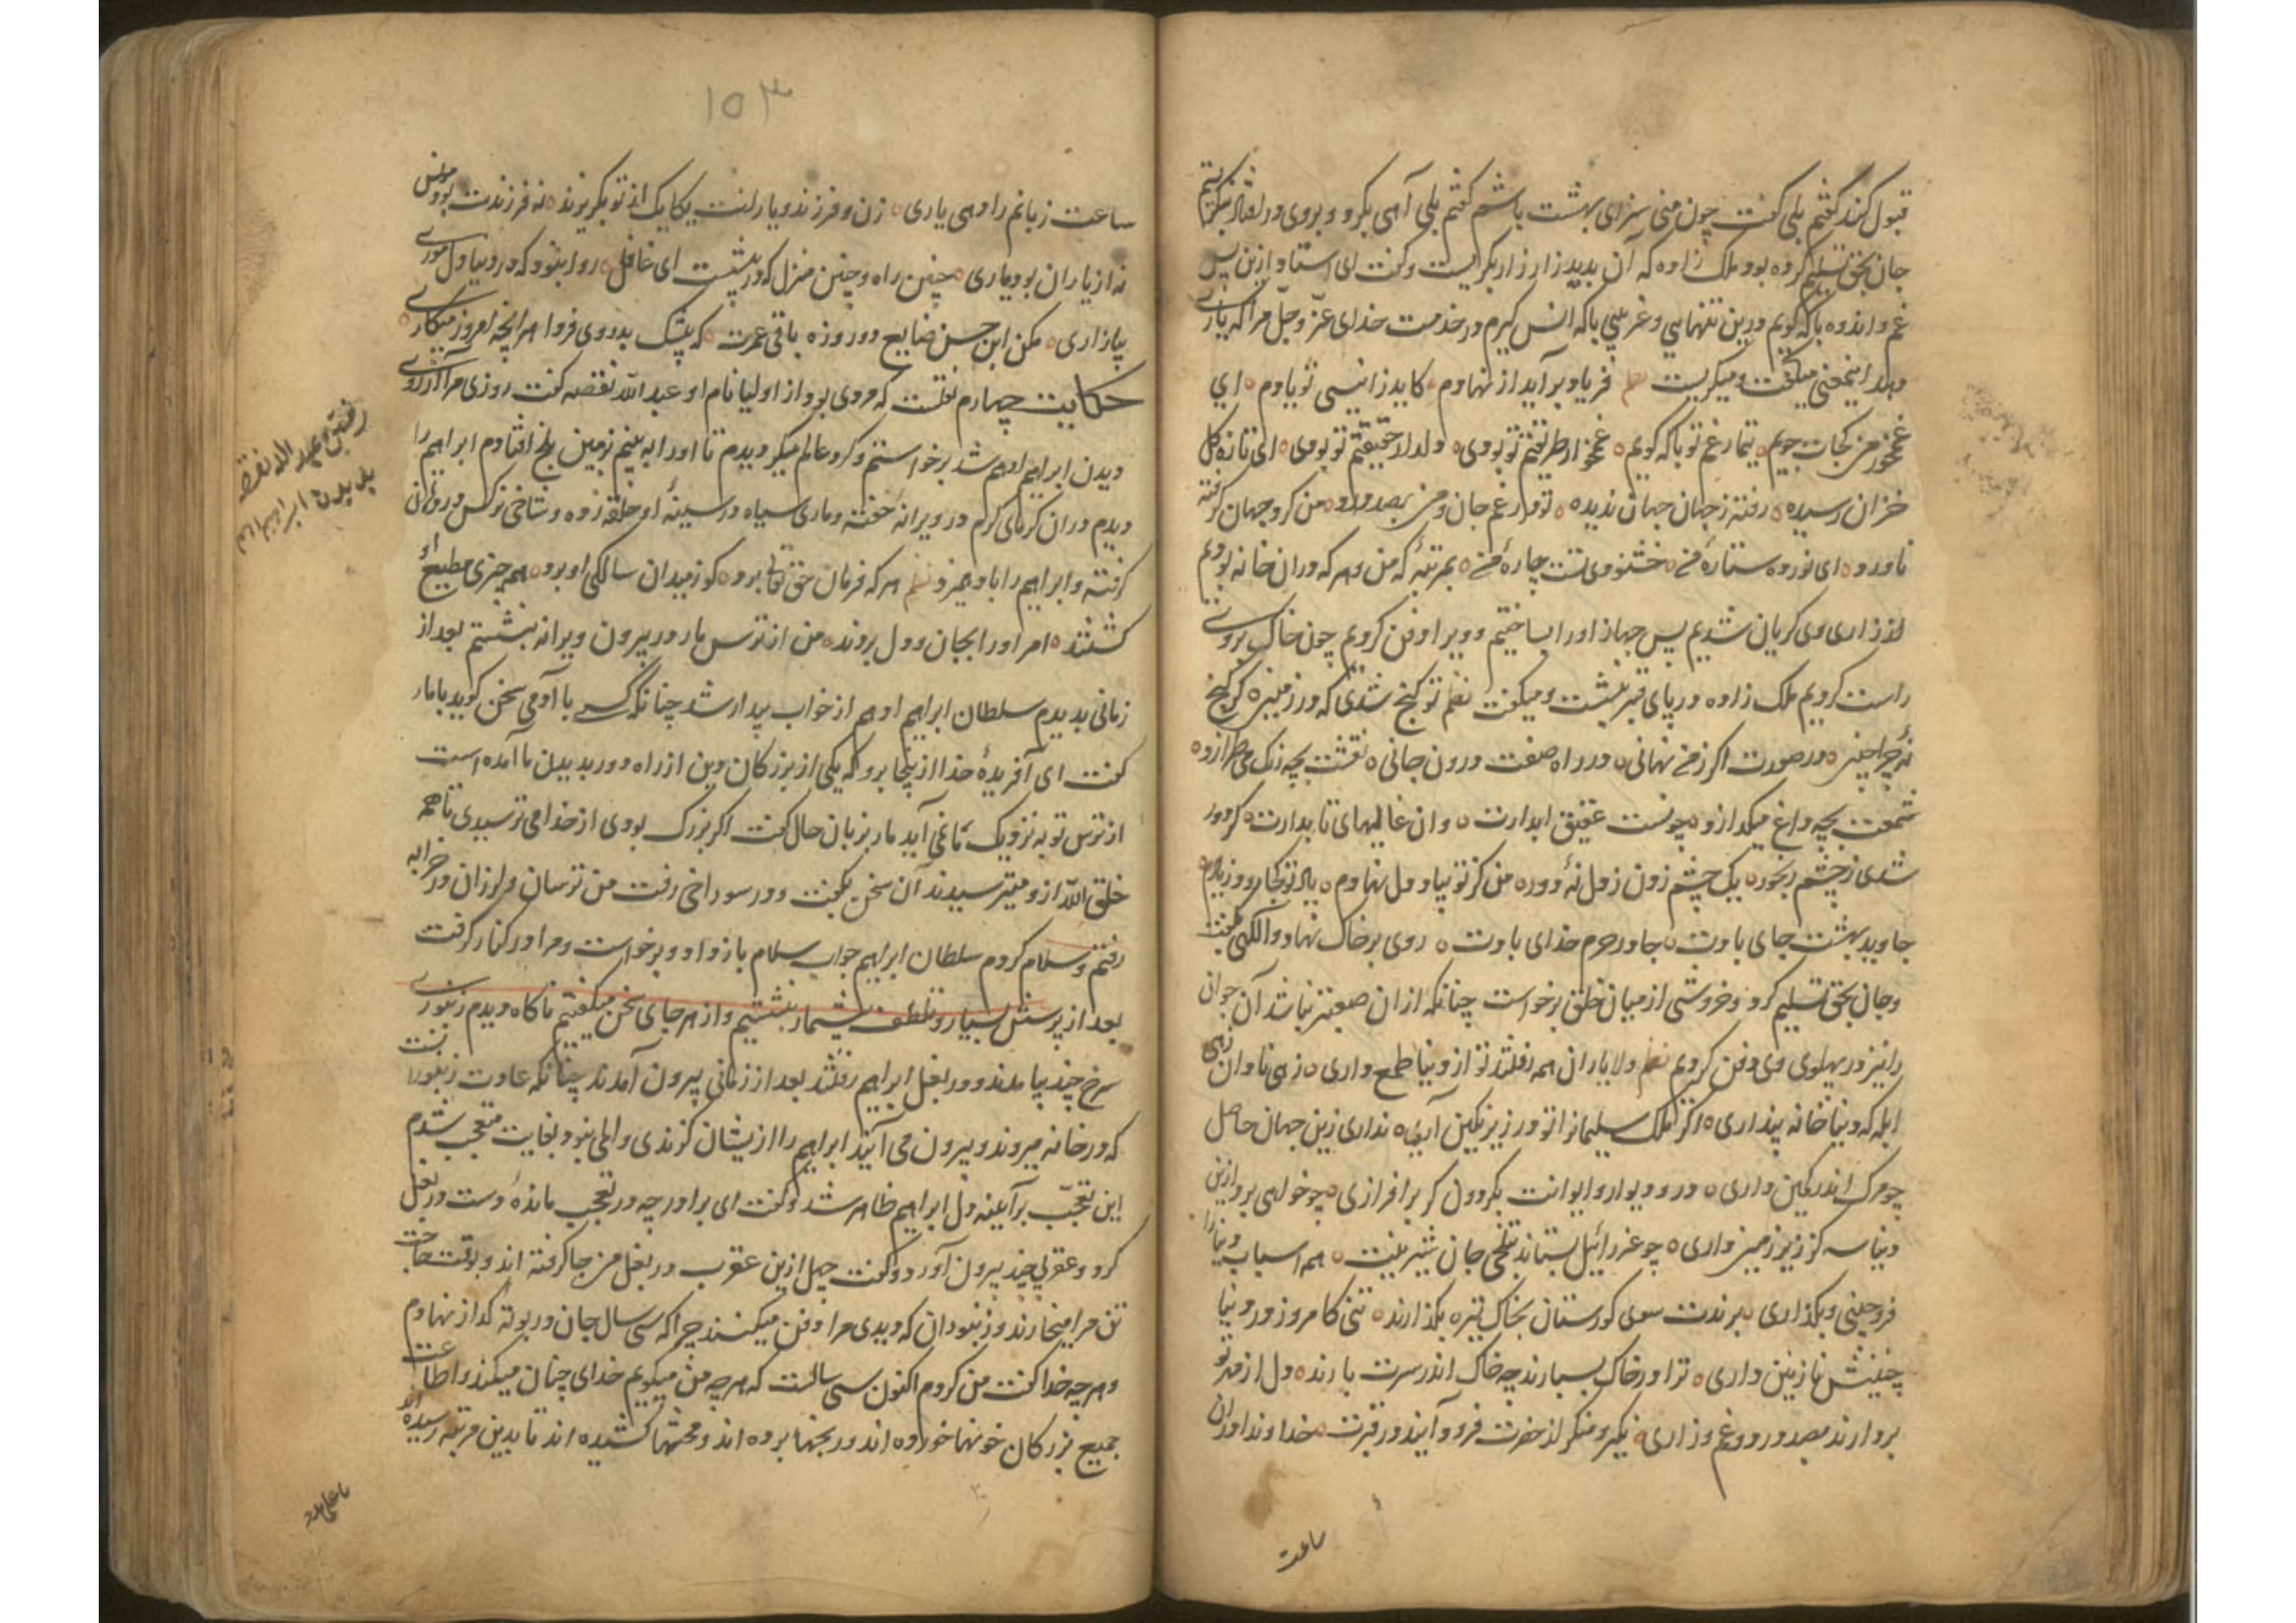 قبول کند گفتم بلی گفت چون منی سزای بهشت باشم گفتم بلی آهی بکرد و بروی در افتاد بنگریستم
جان بحق تسلیم کرده بود ملک زاده که آن بدید زار زار بگریست و گفت ای استاد ازین پس
غم و اندوه باکه گویم درین تنهایی و غریبی باکه انس گیرم در خدمت خدای عزّ و جلّ مراکه یاری
دهد اینمعنی میگفت و میگریست نظم فریاد برآید از نهادم کاید ز انیسی تو یادم ای
غمخور من کجات جویم تیمار غم تو باکه گویم غمخوار طریقتم تو بودی دلدار حقیقتم تو بودی ای تازه گل
خزان رسیده رفته ز جهان جهان ندیده تو در غم جان و من بصد درد من گرد جهان گرفته
ناورد ای نوروه ستاره من خشنودی تست چاره من بمرتبهٔ که من و هرکه دران خانه بودیم
از زاری وی گریان شدیم پس جهاز اورا بساختیم و ویرا دفن کردیم چون خاک بروی
راست کردیم ملک زاده در پای قبر بنشست و میگفت نظم تو گنج شدی که در زمینی گر گنج
نهٔ چرا چنینی در صورت اگر ز من نهانی در راه صفت درون جانی نقشت بچه رنگ می طرازد
شمعت بچه داغ میگدازد چونست عقیق ابدارت وان غالیهای تابدارت گر دور
شدی ز چشم رنجور یک چشم زدن ز دل نهٔ دور من گر تو بیاد دل نهادم یاد تو کجا رود ز یادم
جاوید بهشت جای بادت جا در حرم خدای بادت روی برخاک نهاد و الله گفت
و جان بحق تسلیم کرد و خروشی از میان خلق برخواست چنانکه ازان صعبتر نباشد آن جوان
را نیز در پهلوی وی دفن کردیم نظم دلا یاران همه رفتند تو از دنیا طمع داری زهی نادان زهی
ابله که دنیا خانه پنداری اگر ملک سلیمانرا تو در زیر نگین آری نداری زین جهان حاصل
چو مرگ اندر کمین داری در و دیوار و ایوانت بگردون گر برافرازی چو خواهی برد ازین
دنیا سه گز زیر زمین داری چو عزرائیل بستاند بتلخی جان شیرینت همه اسباب دنیا را
فروچینی و بگذاری برندت سوی گورستان بخاک تیره بگذارند تنی کامروز در دنیا
چنینش نازنین داری ترا در خاک بسپارند چه خاک اندر سرت بارند دل از مهر تو
بردارند بصد درد و غم و زاری نکیر و منکر از حضرت فرود آیند در قبرت خداوندا دران
ساعت
۱۵۳
ساعت زبانم را دهی یاری زن و فرزند و یارانت یکایک از تو بگریزند نه فرزندت بود مونس
نه از یاران بود یاری چنین راه و چنین منزل که در پیشست ای غافل روا نبود که در دنیا دل موری
بیازاری مکن ابن حسن ضایع دو روزه باقی عمرت که بیشک بدروی فردا هر انچه امروز میکاری
حکایت چهارم نقلست که مردی بود از اولیا نام او عبد الله نقصه گفت روزی مرا آرزوی
دیدن ابراهیم ادهم شد برخواستم و گرد عالم میگردیدم تا اورا به بینم بزمین بلخ افتادم ابراهیم را
دیدم دران گرمای گرم در ویرانه خفته و ماری سیاه در سینهٔ او حلقه زده و شاخی نرگس در دهان
گرفته و ابراهیم را باد میزد نظم هرکه فرمان حق تعالی برد گو ز میدان سالکی او برد همه چیزی مطیع او
گشتند امر اورا بجان و دل بروند من از ترس مار در بیرون ویرانه بنشستم بعد از
زمانی بدیدم سلطان ابراهیم ادهم از خواب بیدار شد چنانکه کسی با آدمی سخن گوید با مار
گفت ای آفریدهٔ خدا از ینجا برو که یکی از بزرگان دین از راه دور بدیدن ما آمده است
از ترس تو به نزدیک ما نمی آید مار بزبان حال گفت اگر بزرگ بودی از خدا می ترسیدی تا همه
خلق الله ازو میترسیدند آن سخن بگفت و در سوراخی رفت من ترسان و لرزان در خرابه
رفتم و سلام کردم سلطان ابراهیم جواب سلام باز داد و برخواست و مرا در کنار گرفت
بعد از پرسش بسیار و تلطف بیشمار بنشستیم و از هر جای سخن میگفتیم ناگاه دیدم زنبوری
سرخ چند بیامدند و در بغل ابراهیم رفتند بعد از زمانی بیرون آمدند چنانکه عادت زنبورانست
که در خانه میروند و بیرون می آیند ابراهیم را از یشان گزندی و المی نبود بغایت متعجب شدم
این تعجّب بر آیینه دل ابراهیم ظاهر شد و گفت ای برادر چه در تعجب ماندهٔ دست در بغل
کرد و عقربی چند بیرون آورد و گفت چهل ازین عقرب در بغل من جا گرفته اند و بوقت حاجت
تن مرا میخارند و زنبوران که دیدی مرا دفن میکنند چرا که سی سال جان در بوته گداز نهادم
و هرچه خدا گفت من کردم اکنون سی سالست که هرچه من میگویم خدای چنان میکند و اطاعت
جمیع بزرگان خونها خورده اند و رنجها برده اند و محنتها کشیده اند تا بدین مرتبه رسیده اند
رفتن عبد الله نقصه
بدیدن ابراهیم ادهم